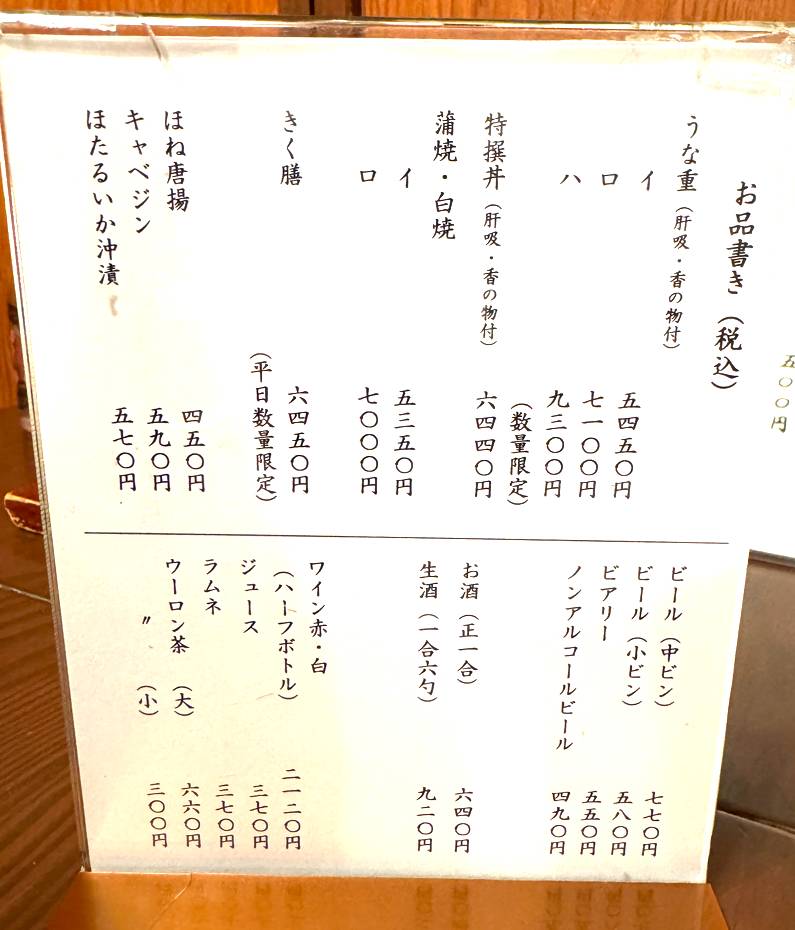 五〇〇円
お品書き（税込）
うな重（肝吸・香の物付）
イ 五四五〇円
ロ 七一〇〇円
ハ 九三〇〇円
（数量限定）
特撰丼（肝吸・香の物付） 六四四〇円
蒲焼・白焼
イ 五三五〇円
ロ 七〇〇〇円
きく膳 六四五〇円
（平日数量限定）
ほね唐揚 四五〇円
キャベジン 五九〇円
ほたるいか沖漬 五七〇円
ビール（中ビン） 七七〇円
ビール（小ビン） 五八〇円
ビアリー 五五〇円
ノンアルコールビール 四九〇円
お酒（正一合） 六四〇円
生酒（一合六勺） 九二〇円
ワイン赤・白
（ハーフボトル） 二一二〇円
ジュース 三七〇円
ラムネ 三七〇円
ウーロン茶（大） 六六〇円
〃（小） 三〇〇円